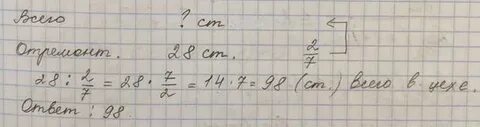 Всего ? ст
Отремонт. 28 ст. 2/7
28 : 2/7 = 28 · 7/2 = 14 · 7 = 98 (ст.) всего в цехе.
Ответ : 98.